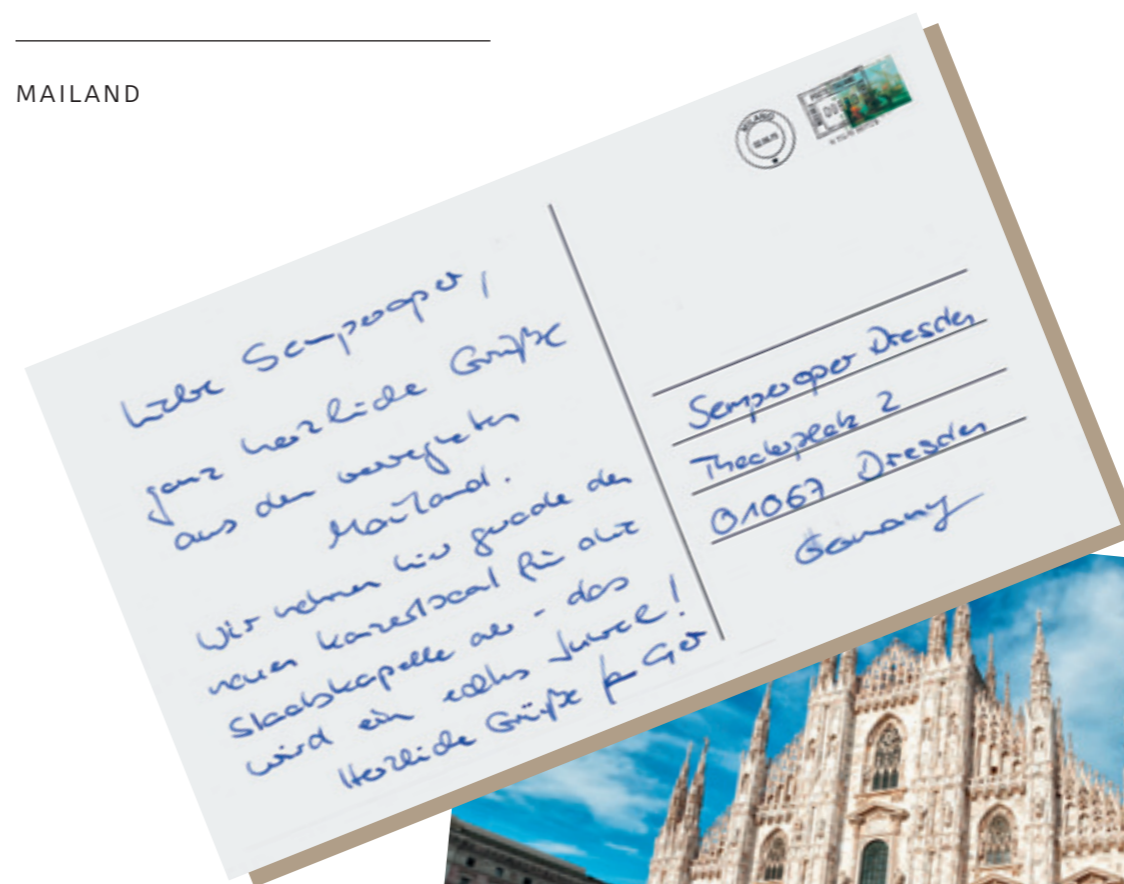 MAILAND
MILANO
Liebe Semperoper,
ganz herzliche Grüße
aus dem verregneten
Mailand.
Wir nehmen hier gerade den
neuen Konzertsaal für die
Staatskapelle ab - das
wird ein echtes Juwel!
Herzliche Grüße
Semperoper Dresden
Theaterplatz 2
01067 Dresden
Germany